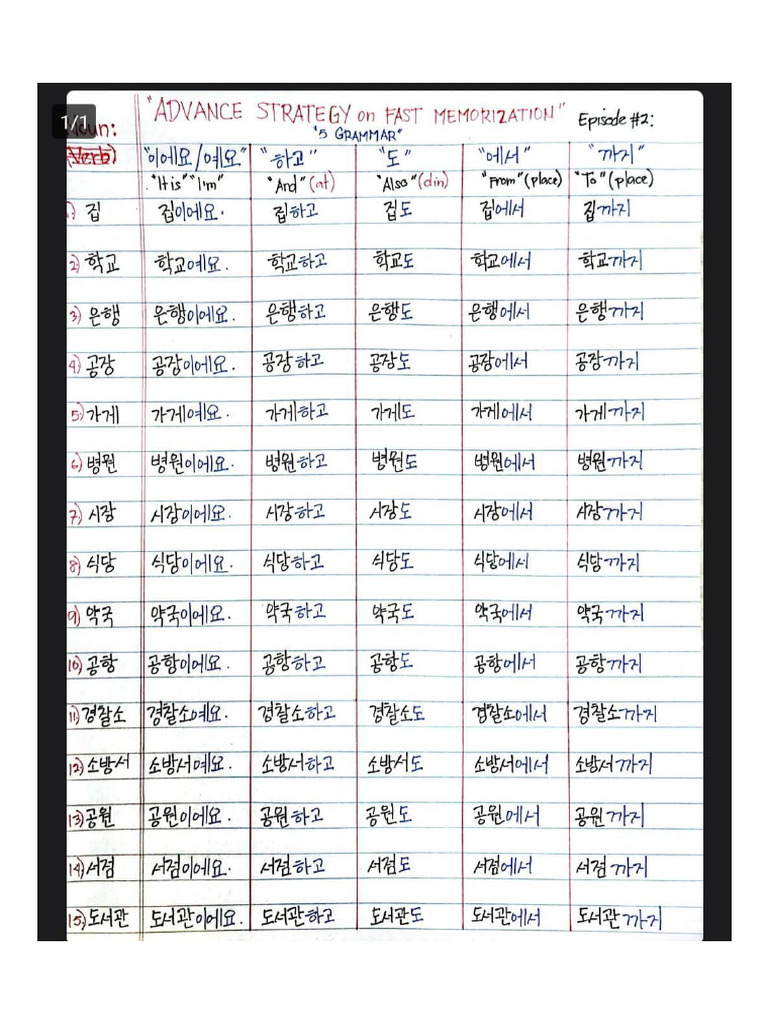 1/1
"ADVANCE STRATEGY on FAST MEMORIZATION" Episode #2:
Noun: "5 GRAMMAR"
(Verb) "이에요/예요" "하고" "도" "에서" "까지"
"It is" "I'm" "And" (at) "Also" (din) "From" (place) "To" (place)
1) 집 집이에요. 집하고 집도 집에서 집까지
2) 학교 학교예요. 학교하고 학교도 학교에서 학교까지
3) 은행 은행이에요. 은행하고 은행도 은행에서 은행까지
4) 공장 공장이에요. 공장하고 공장도 공장에서 공장까지
5) 가게 가게예요. 가게하고 가게도 가게에서 가게까지
6) 병원 병원이에요. 병원하고 병원도 병원에서 병원까지
7) 시장 시장이에요. 시장하고 시장도 시장에서 시장까지
8) 식당 식당이에요. 식당하고 식당도 식당에서 식당까지
9) 약국 약국이에요. 약국하고 약국도 약국에서 약국까지
10) 공항 공항이에요. 공항하고 공항도 공항에서 공항까지
11) 경찰소 경찰소예요. 경찰소하고 경찰소도 경찰소에서 경찰소까지
12) 소방서 소방서예요. 소방서하고 소방서도 소방서에서 소방서까지
13) 공원 공원이에요. 공원하고 공원도 공원에서 공원까지
14) 서점 서점이에요. 서점하고 서점도 서점에서 서점까지
15) 도서관 도서관이에요. 도서관하고 도서관도 도서관에서 도서관까지